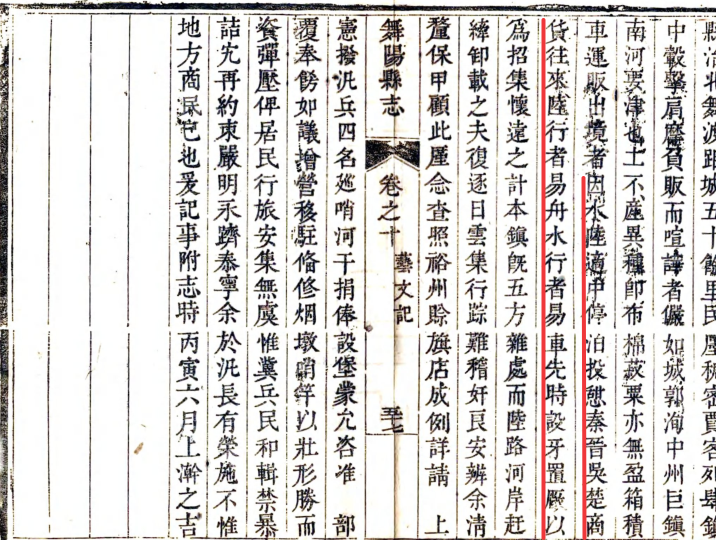 縣治北舞渡距城五十餘里民廛稠密賈客列肆鎮
中轂擊肩摩負販而喧譁者儼如城郭洵中州巨鎮
南河要津也土不產異種即布棉菽粟亦無盈箱積
車運販出境者因水陸適中停泊投憩秦晉吳楚商
貨往來陸行者易舟水行者易車先時設牙置厰以
爲招集懷遠之計本鎮旣五方雜處而陸路河岸赶
卸載之夫復逐日雲集行踪難稽奸良安辨余清
釐保甲顧此廑念查照裕州賒旗店成例詳請 上
舞陽縣志 卷之十 藝文記
憲撥汛兵四名廵哨河干捐俸設堡蒙允咨准 部
覆奉飭如議增營移駐俻修烟墩哨等以壯形勝而
資彈壓俾居民行旅安集無虞惟冀兵民和輯禁暴
詰宄再約束嚴明永躋泰寧余於汛長有榮施不惟
地方商民已也爰記事附志時 丙寅六月上澣之吉